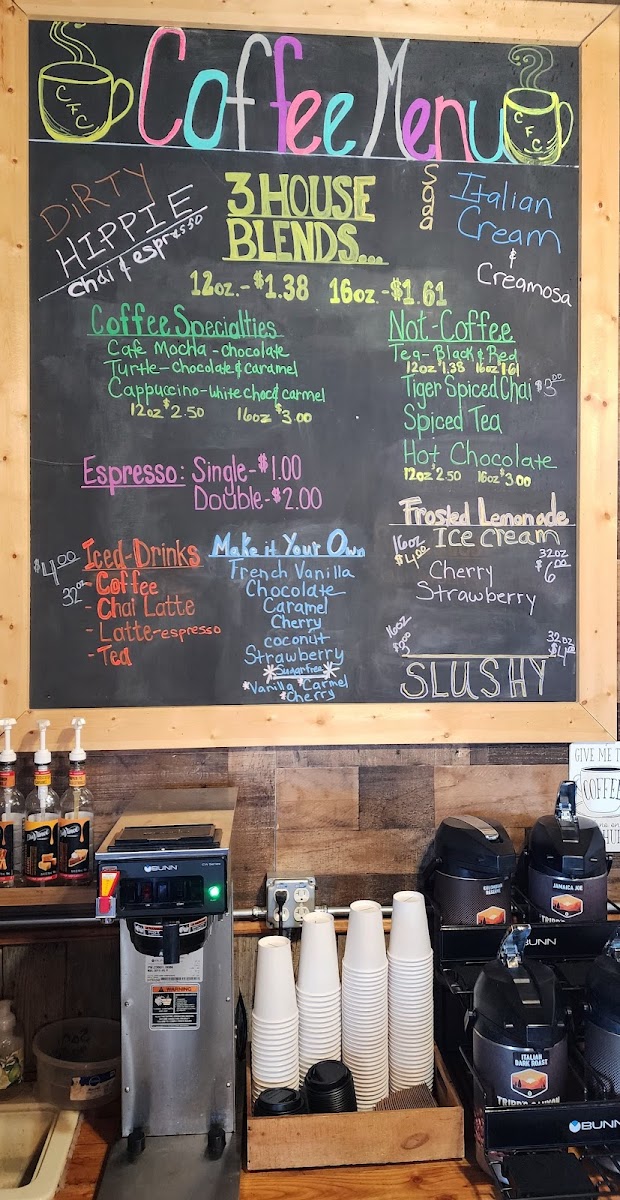 Coffee Menu
CFC
CFC
DiRTY
HIPPIE
chai & espresso
3 HOUSE
BLENDS...
Soda
Italian
Cream
&
Creamosa
12oz.-$1.38 16oz-$1.61
Coffee Specialties
Cafe Mocha - chocolate
Turtle - chocolate & caramel
Cappuccino - white choc & carmel
12oz $2.50 16oz $3.00
Not-Coffee
Tea - Black & Red
12oz $1.38 16oz $1.61
Tiger Spiced Chai $3.00
Spiced Tea
Hot Chocolate
12oz $2.50 16oz $3.00
Espresso: Single - $1.00
Double - $2.00
Frosted Lemonade
Ice cream
16oz
$4.00
32oz
$6.00
Cherry
Strawberry
Iced-Drinks
$4.00
32oz
- Coffee
- Chai Latte
- Latte-espresso
- Tea
Make it Your Own
French Vanilla
Chocolate
Caramel
Cherry
coconut
Strawberry
*Sugar Free*
*Vanilla *Carmel
*Cherry
16oz
32oz
SLUSHY
GIVE ME T
COFFEE
BUNN
WARNING
JAMAICA JOE
BUNN
ITALIAN
DARK ROAST
BUNN